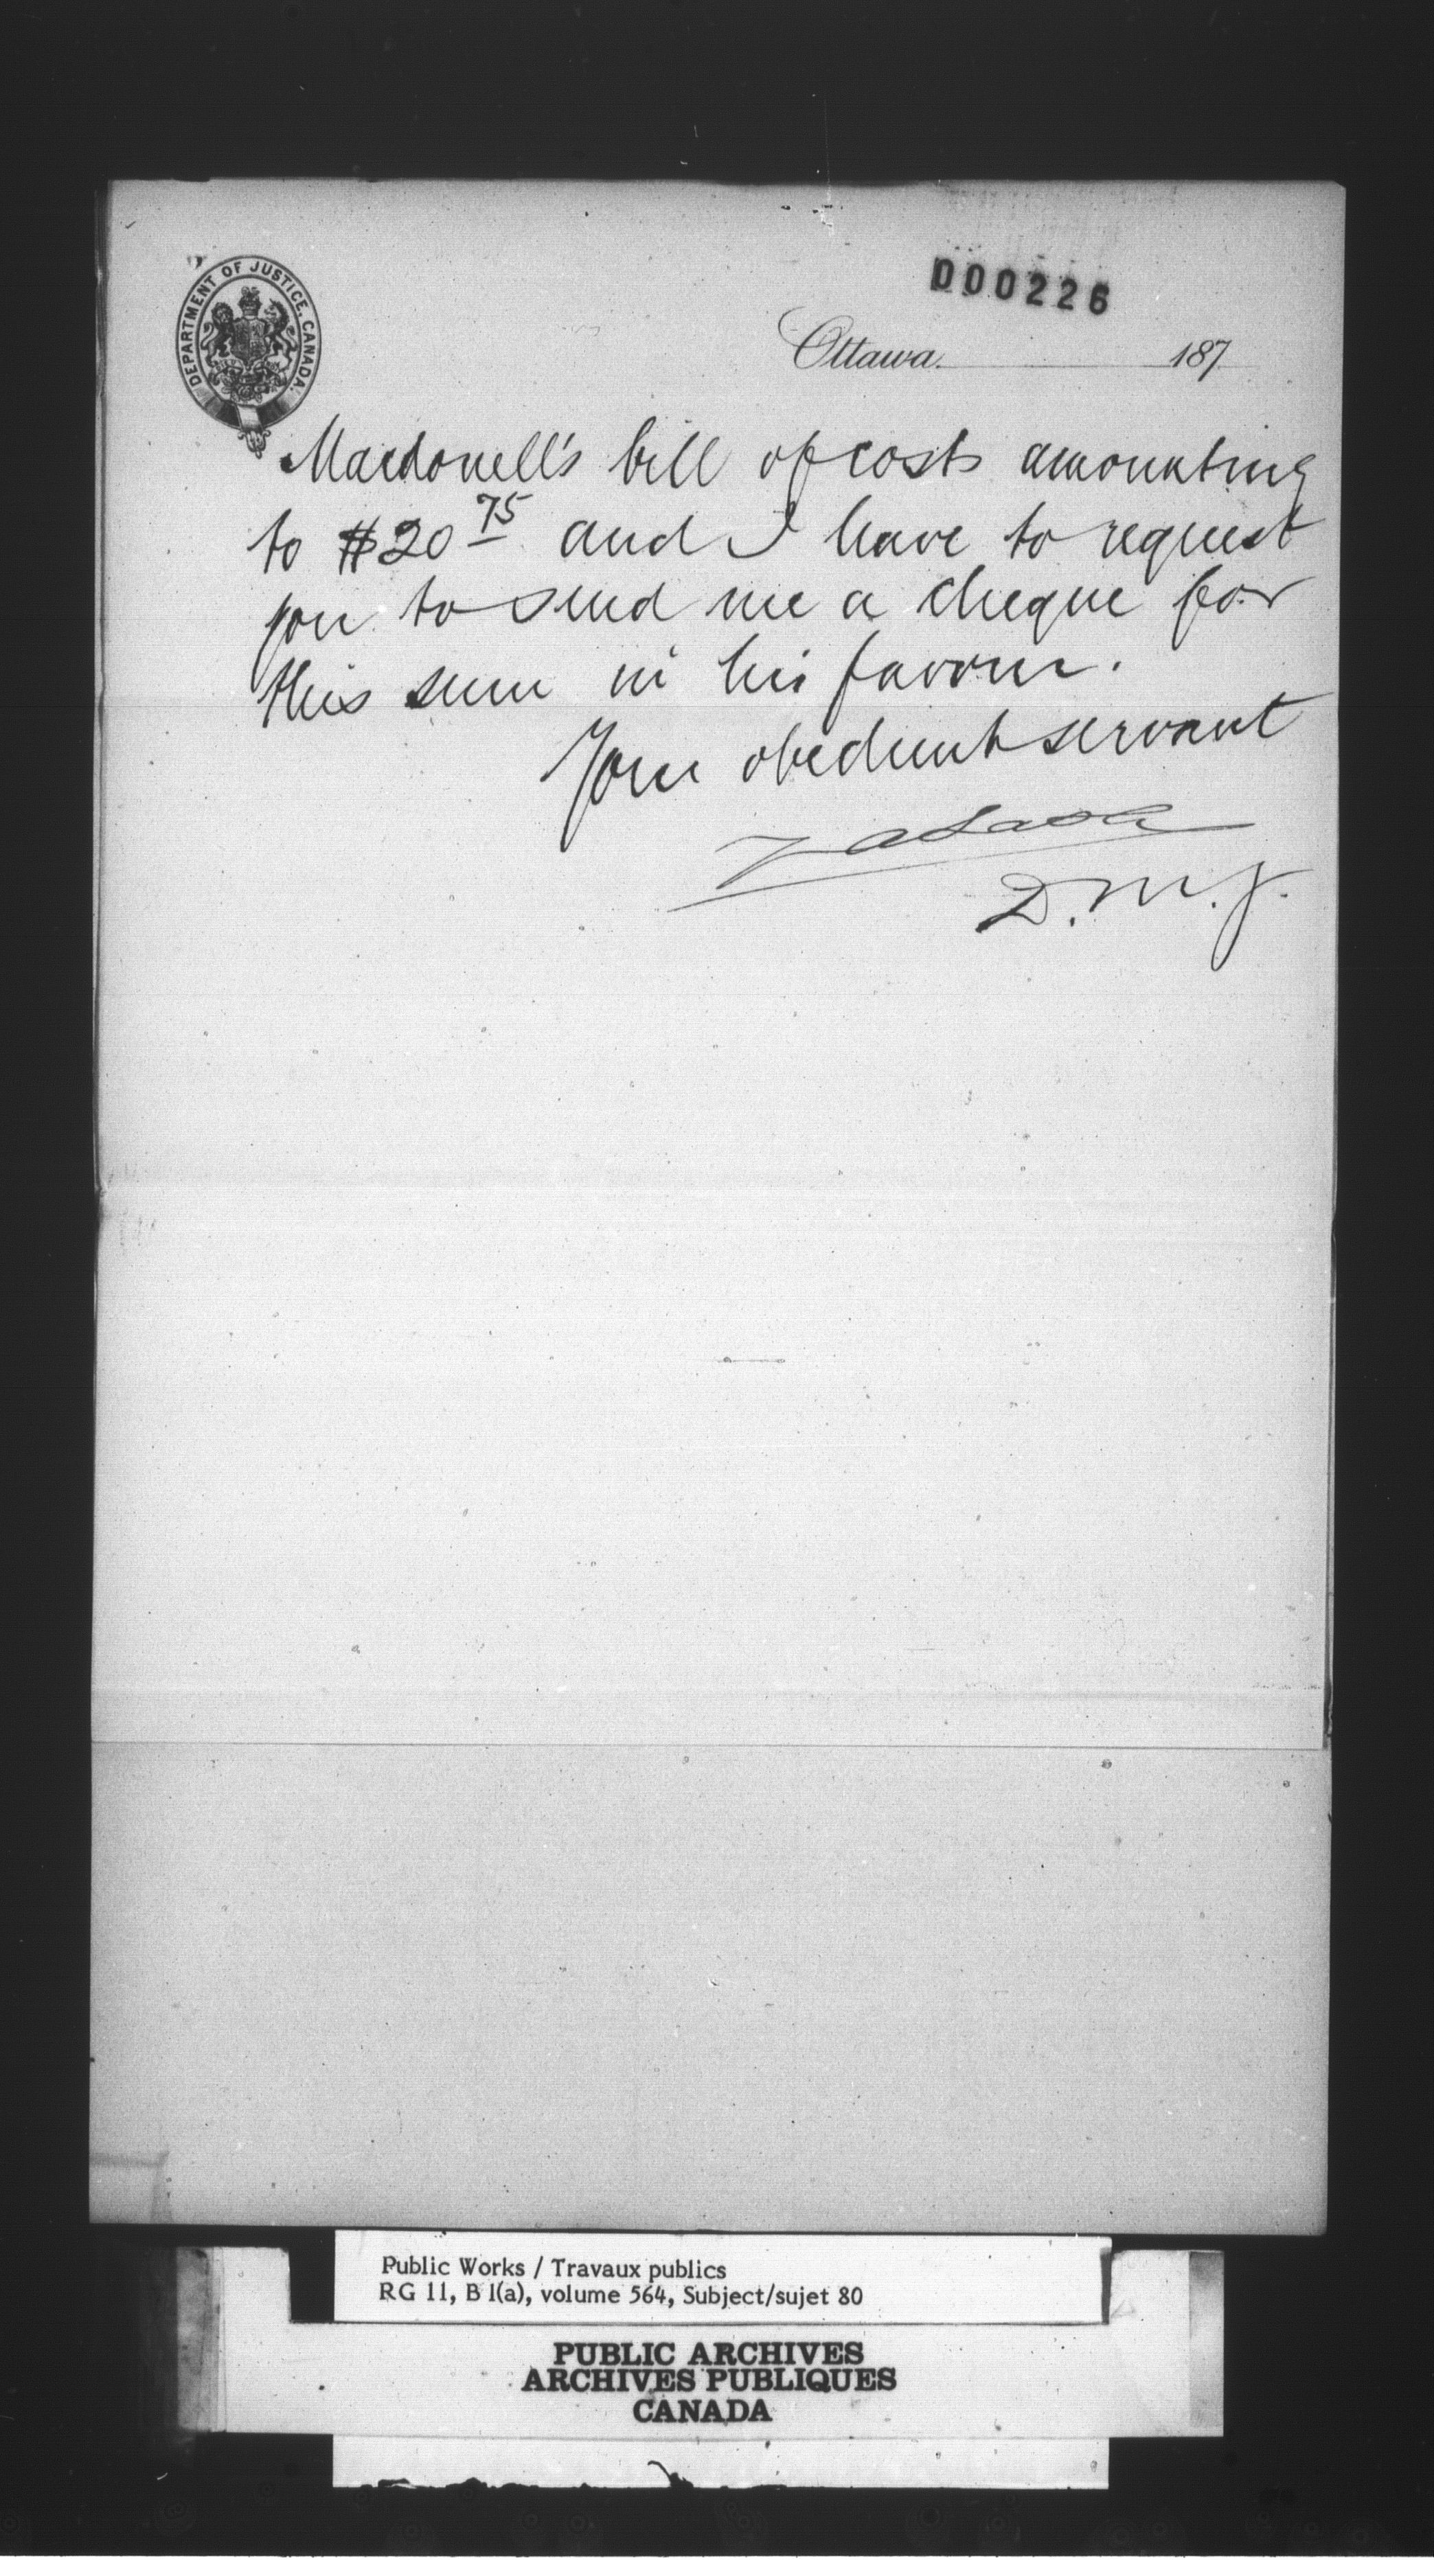 DEPARTMENT OF JUSTICE, CANADA.
000226
Ottawa. 187
Macdonell's bill of costs amounting
to $20 75 and I have to request
you to send me a cheque for
this sum in his favour.
Your obedient servant
ZA Lash
D.M.J.
Public Works / Travaux publics
RG 11, B 1(a), volume 564, Subject/sujet 80
PUBLIC ARCHIVES
ARCHIVES PUBLIQUES
CANADA